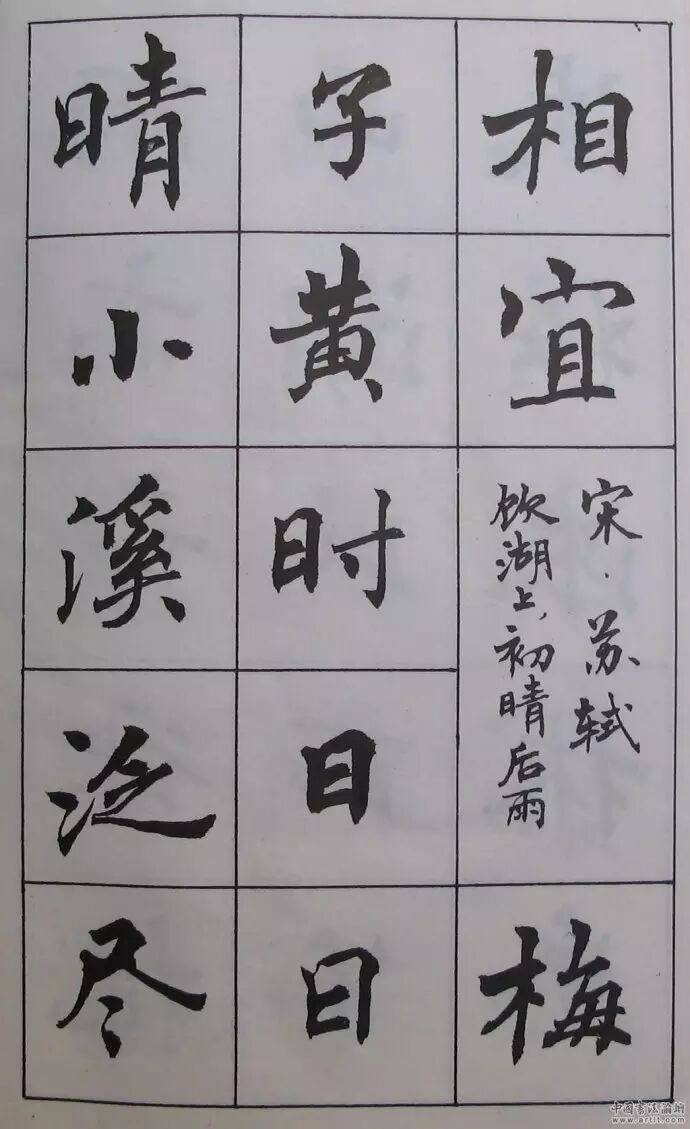 相宜
宋·苏轼
饮湖上,初晴后雨
梅
子黄时日日
晴小溪泛尽
中国书法论坛
www.artit.com